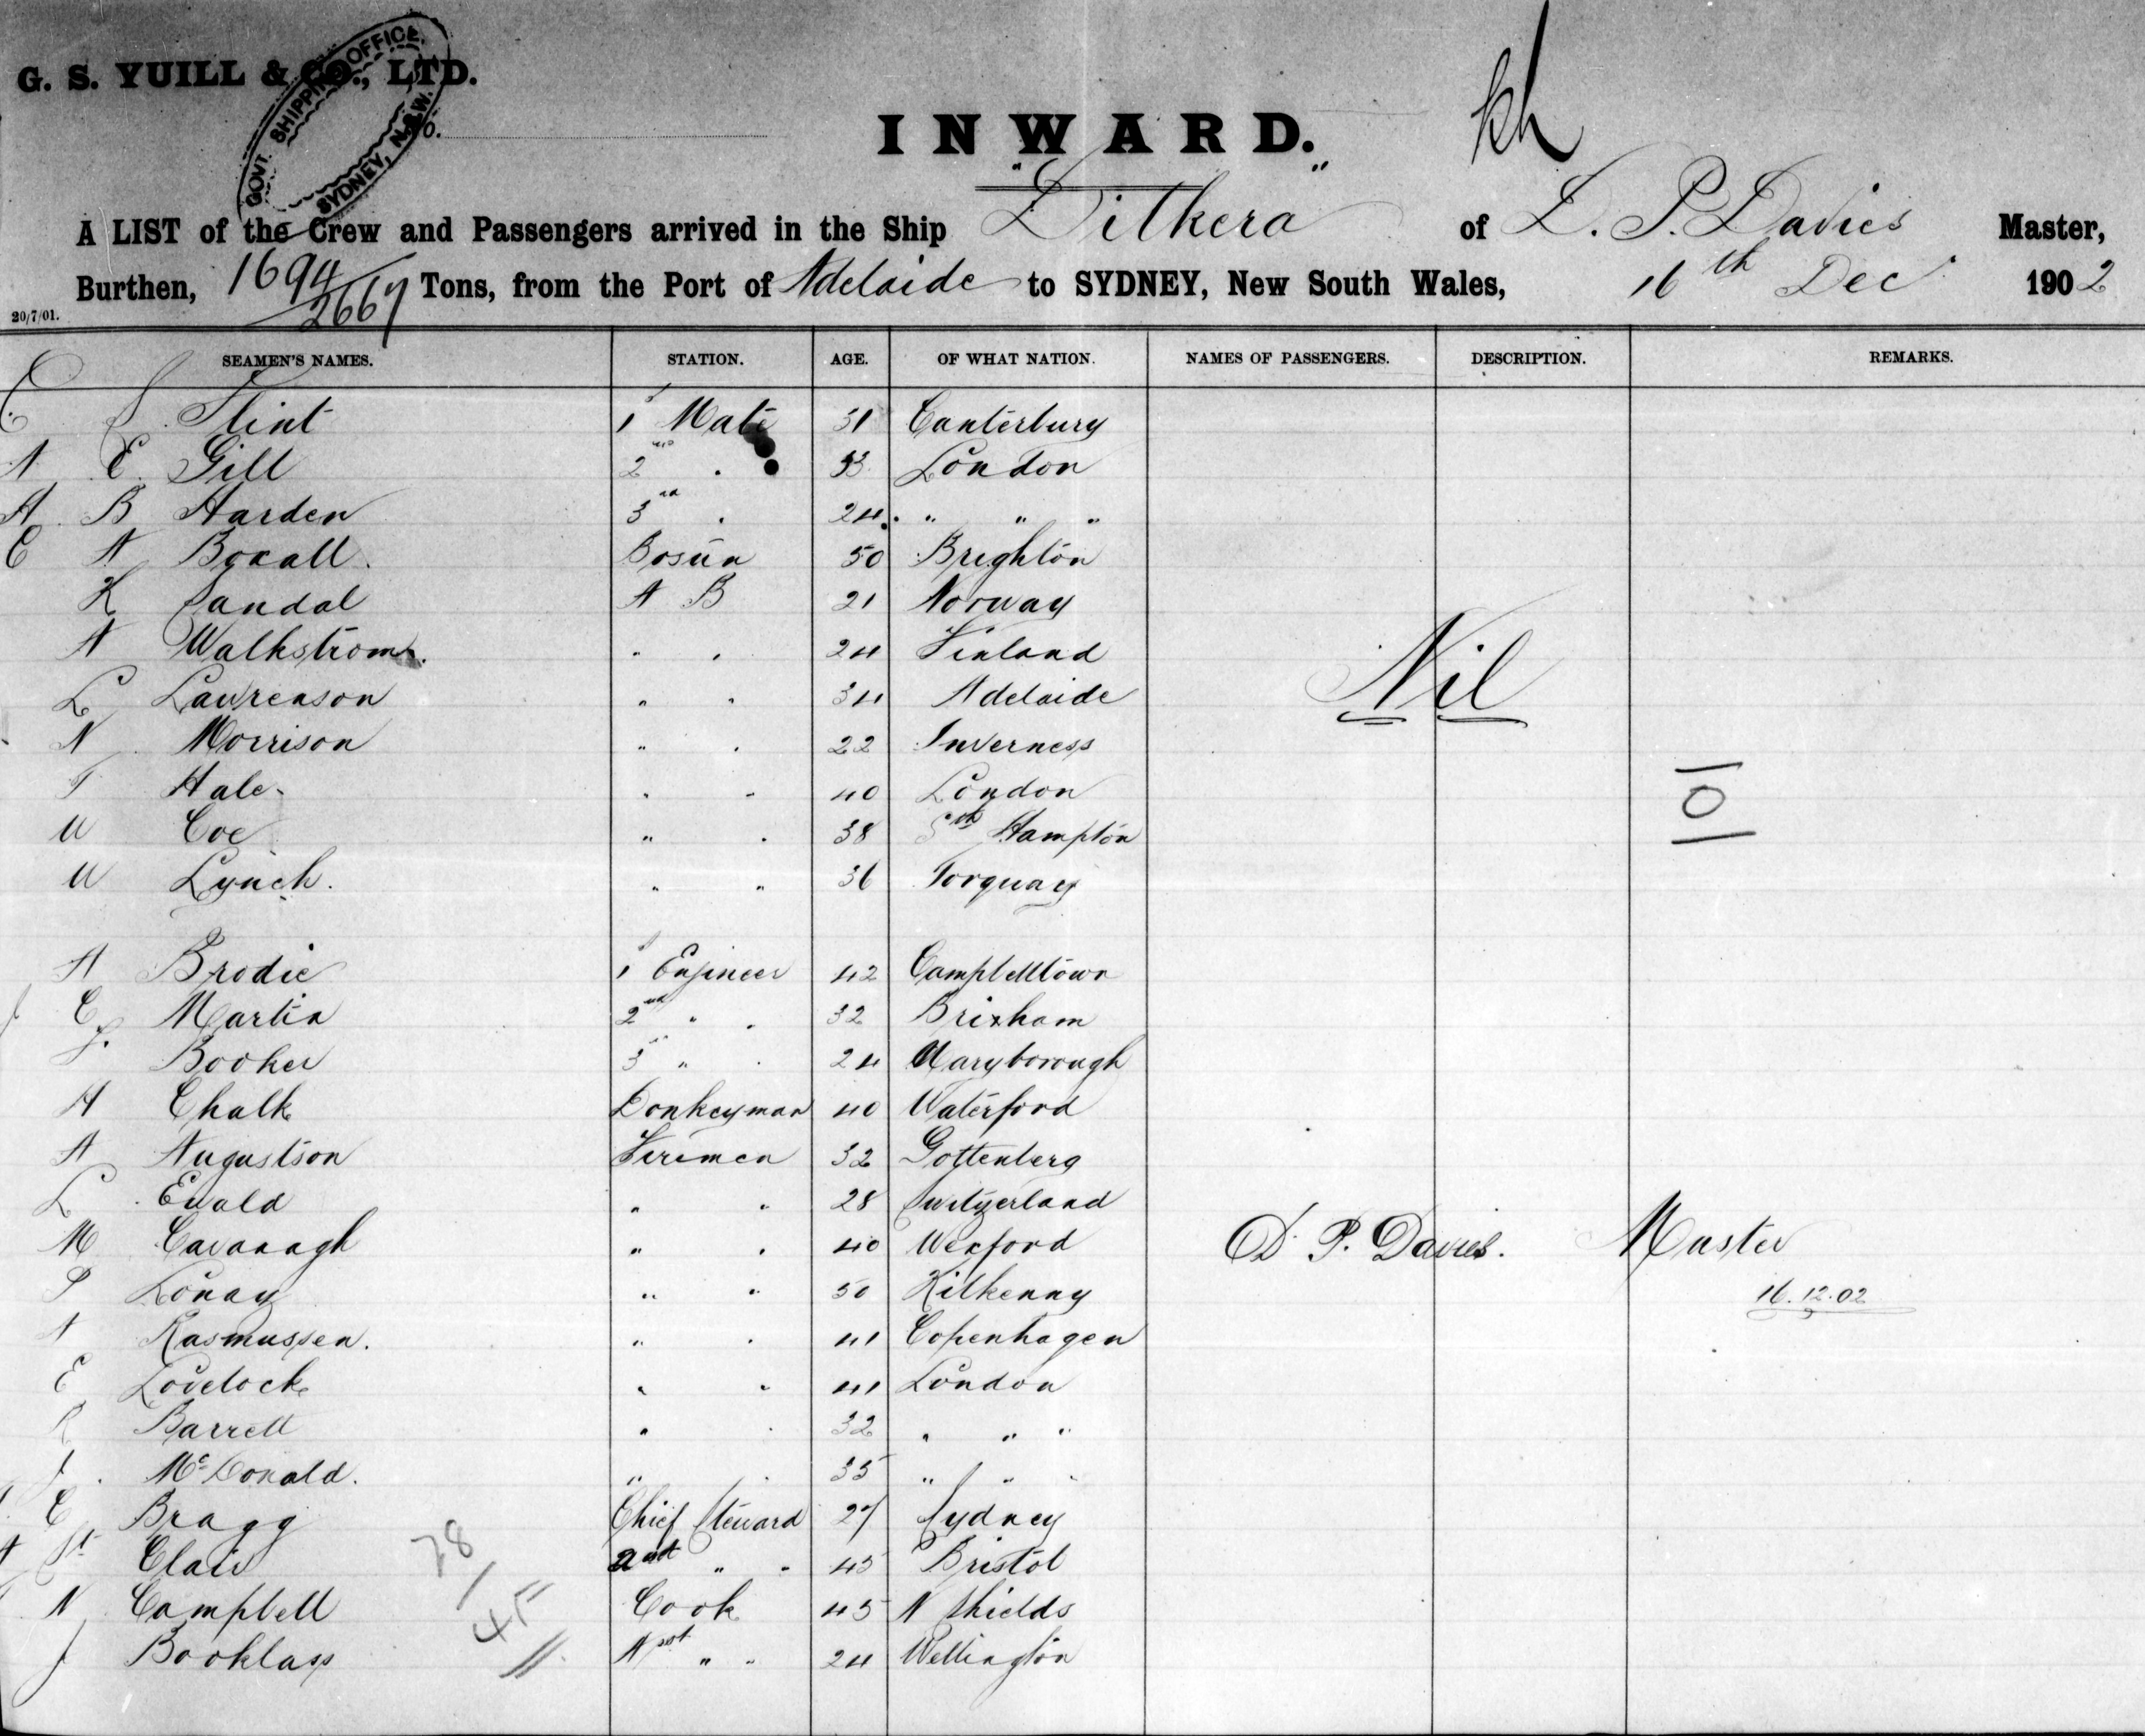 G. S. YUILL & CO., LTD.
GOVT. SHIPPING OFFICE, SYDNEY, N.S.W.
INWARD.
A LIST of the Crew and Passengers arrived in the Ship "Dilkera" of D. P. Davies Master,
Burthen, 1694/2667 Tons, from the Port of Adelaide to SYDNEY, New South Wales, 16th Dec 1902
20/7/01.
SEAMEN'S NAMES. STATION. AGE. OF WHAT NATION. NAMES OF PASSENGERS. DESCRIPTION. REMARKS.
Flint 1st Mate 31 Canterbury
A E Gill 2nd " 33 London
A B Harden 3rd " 24 " " "
C A Boxall Bosun 50 Brighton
K Sandal A B 21 Norway
A Walkstrom " " 24 Finland
L Lawrenson " " 34 Adelaide
Nil
N Morrison " " 22 Inverness
T Hale " " 40 London
101
W Coe " " 38 Sth Hampton
W Lynch " " 36 Torquay
A Brodie 1st Engineer 42 Campbelltown
J C Martin 2nd " " 32 Brixham
Booker 3rd " " 24 Maryborough
H Chalk Donkeyman 40 Waterford
A Augustson Firemen 32 Gottenberg
L Ewald " " 28 Switzerland
M Cavanagh " " 40 Wexford
D. P. Davies. Master
P Lonay " " 50 Kilkenny
16.12.02
A Rasmussen. " " 41 Copenhagen
E Lovelock " " 41 London
R Barrett " " 32 " " "
J. McDonald. " " 35 " " "
C Bragg Chief Steward 27 Sydney
A St Clair 2nd " " 45 Bristol
N Campbell Cook 45 N Shields
J Booklass Asst " " 24 Wellington
28/45